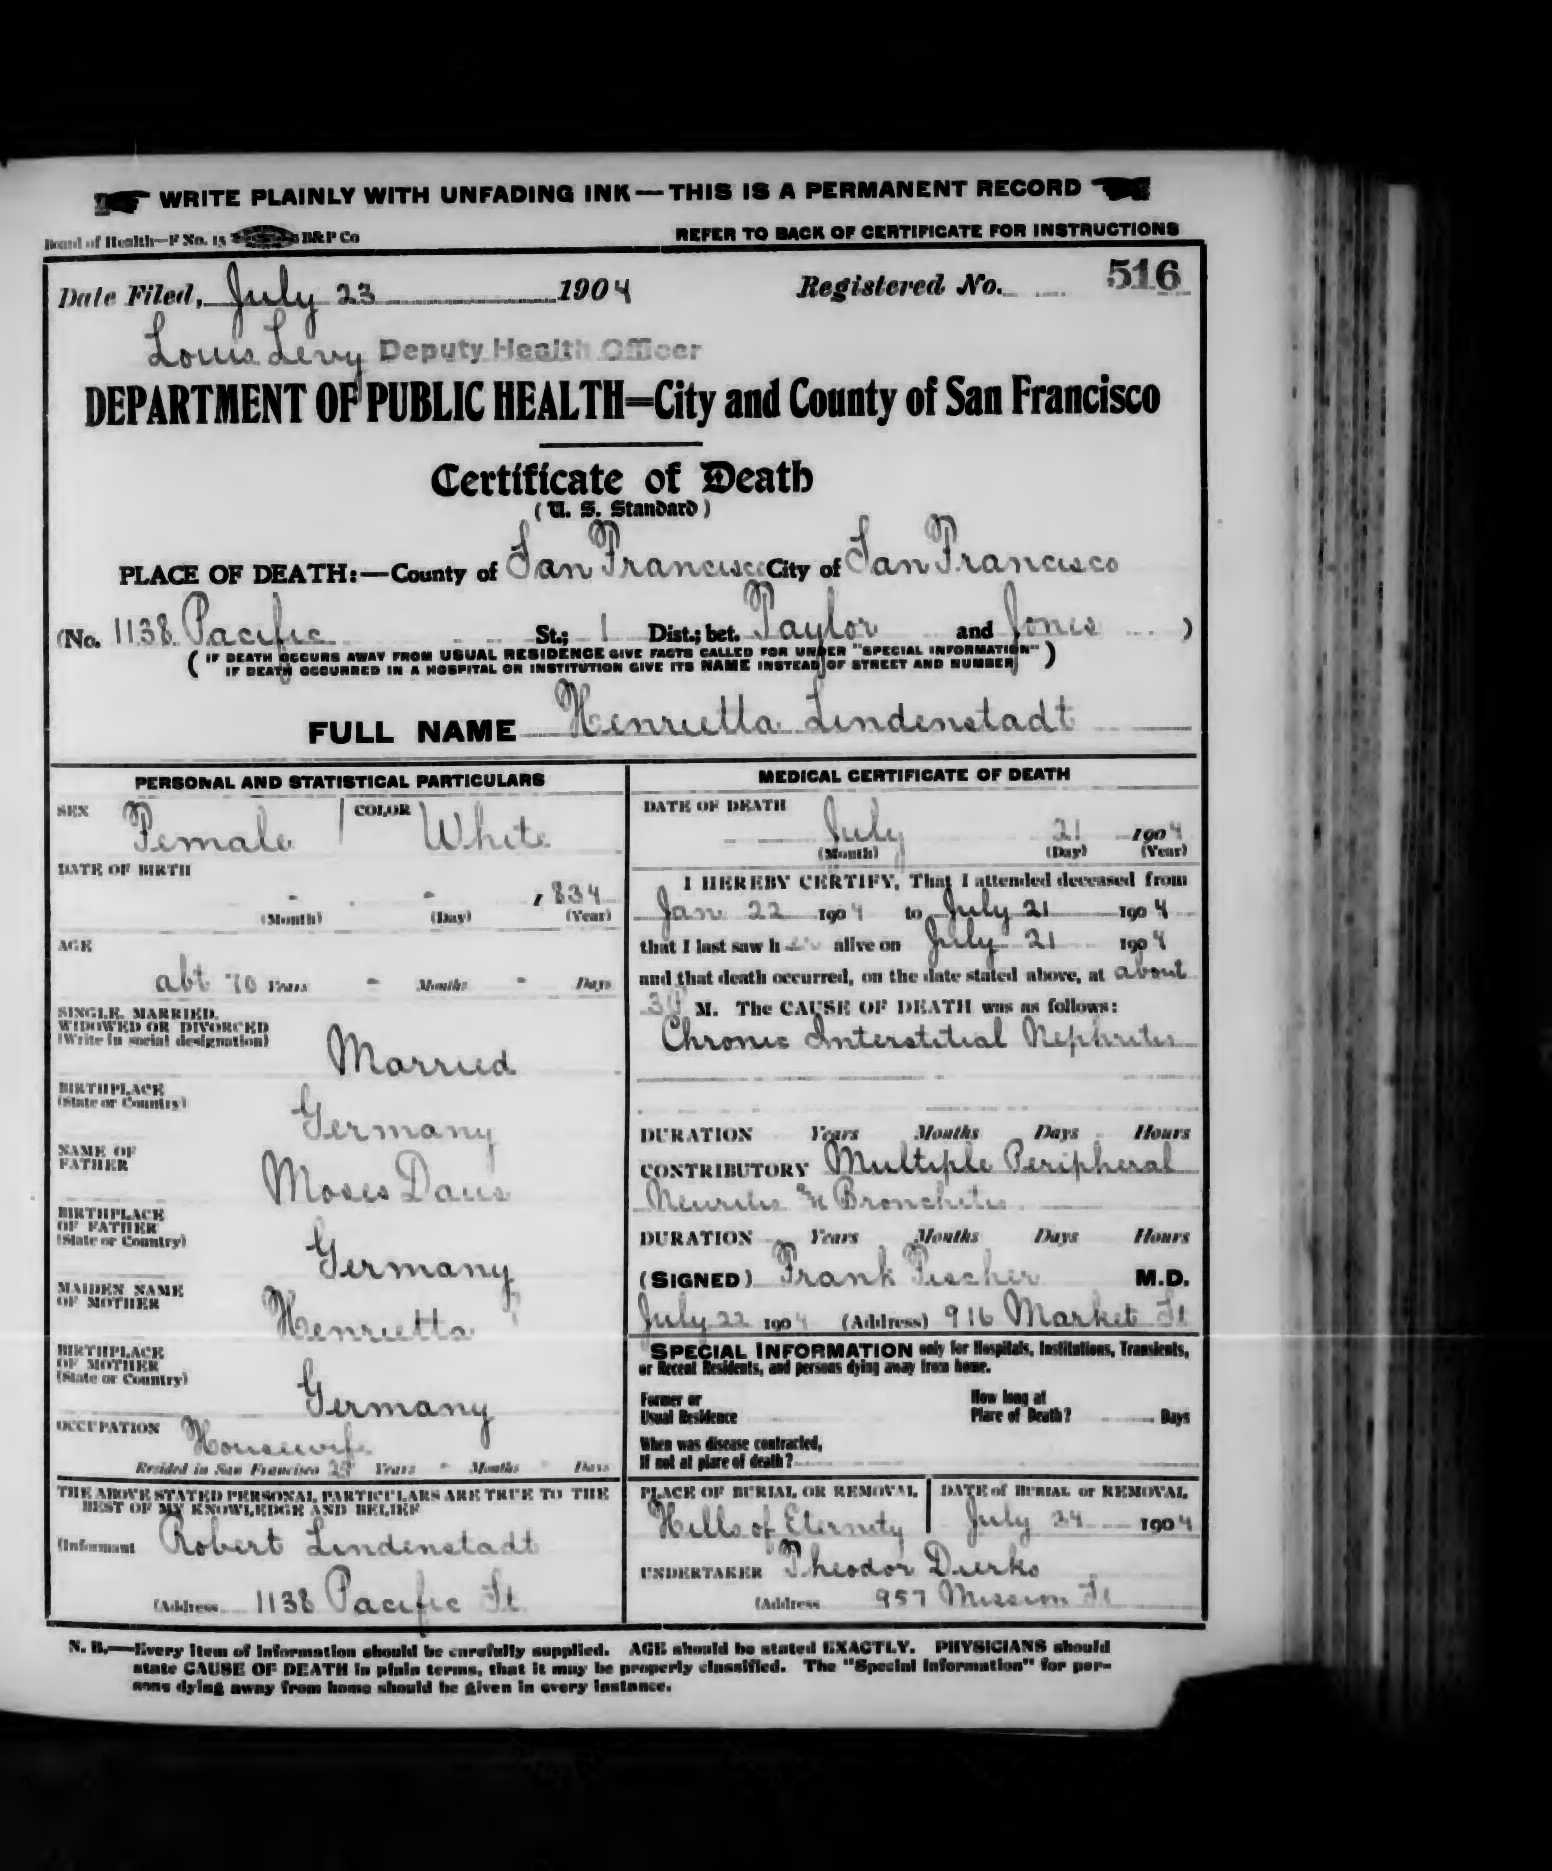 WRITE PLAINLY WITH UNFADING INK — THIS IS A PERMANENT RECORD
Board of Health—F No. 15 B&P Co
REFER TO BACK OF CERTIFICATE FOR INSTRUCTIONS
Date Filed, July 23 1904 Registered No. 516
Louis Levy Deputy Health Officer
DEPARTMENT OF PUBLIC HEALTH=City and County of San Francisco
Certificate of Death
(U. S. Standard)
PLACE OF DEATH:—County of San Francisco City of San Francisco
(No. 1138 Pacific St.; 1 Dist.; bet. Taylor and Jones )
(IF DEATH OCCURS AWAY FROM USUAL RESIDENCE GIVE FACTS CALLED FOR UNDER "SPECIAL INFORMATION"
IF DEATH OCCURRED IN A HOSPITAL OR INSTITUTION GIVE ITS NAME INSTEAD OF STREET AND NUMBER)
FULL NAME Henrietta Lindenstadt
PERSONAL AND STATISTICAL PARTICULARS
SEX Female COLOR White
DATE OF BIRTH
- - , 1834
(Month) (Day) (Year)
AGE
abt 70 Years - Months - Days
SINGLE, MARRIED,
WIDOWED OR DIVORCED
(Write in social designation)
Married
BIRTHPLACE
(State or Country)
Germany
NAME OF
FATHER
Moses Daus
BIRTHPLACE
OF FATHER
(State or Country)
Germany
MAIDEN NAME
OF MOTHER
Henrietta ?
BIRTHPLACE
OF MOTHER
(State or Country)
Germany
OCCUPATION Housewife
Resided in San Francisco Years - Months - Days
THE ABOVE STATED PERSONAL PARTICULARS ARE TRUE TO THE
BEST OF MY KNOWLEDGE AND BELIEF
(Informant Robert Lindenstadt
(Address 1138 Pacific St
MEDICAL CERTIFICATE OF DEATH
DATE OF DEATH
July 21 1904
(Month) (Day) (Year)
I HEREBY CERTIFY, That I attended deceased from
Jan 22 1904 to July 21 1904
that I last saw h er alive on July 21 1904
and that death occurred, on the date stated above, at about
M. The CAUSE OF DEATH was as follows:
Chronic Interstitial Nephritis
DURATION Years Months Days Hours
CONTRIBUTORY Multiple Peripheral
Neuritis & Bronchitis
DURATION Years Months Days Hours
(SIGNED) Frank Fischer M.D.
July 22 1904 (Address) 916 Market St
SPECIAL INFORMATION only for Hospitals, Institutions, Transients,
or Recent Residents, and persons dying away from home.
Former or
Usual Residence
How long at
Place of Death? Days
When was disease contracted,
If not at place of death?
PLACE OF BURIAL OR REMOVAL DATE of BURIAL or REMOVAL
Hills of Eternity July 24 1904
UNDERTAKER Theodor Dierks
(Address 957 Mission St
N. B.—Every item of information should be carefully supplied. AGE should be stated EXACTLY. PHYSICIANS should
state CAUSE OF DEATH in plain terms, that it may be properly classified. The "Special Information" for per-
sons dying away from home should be given in every instance.